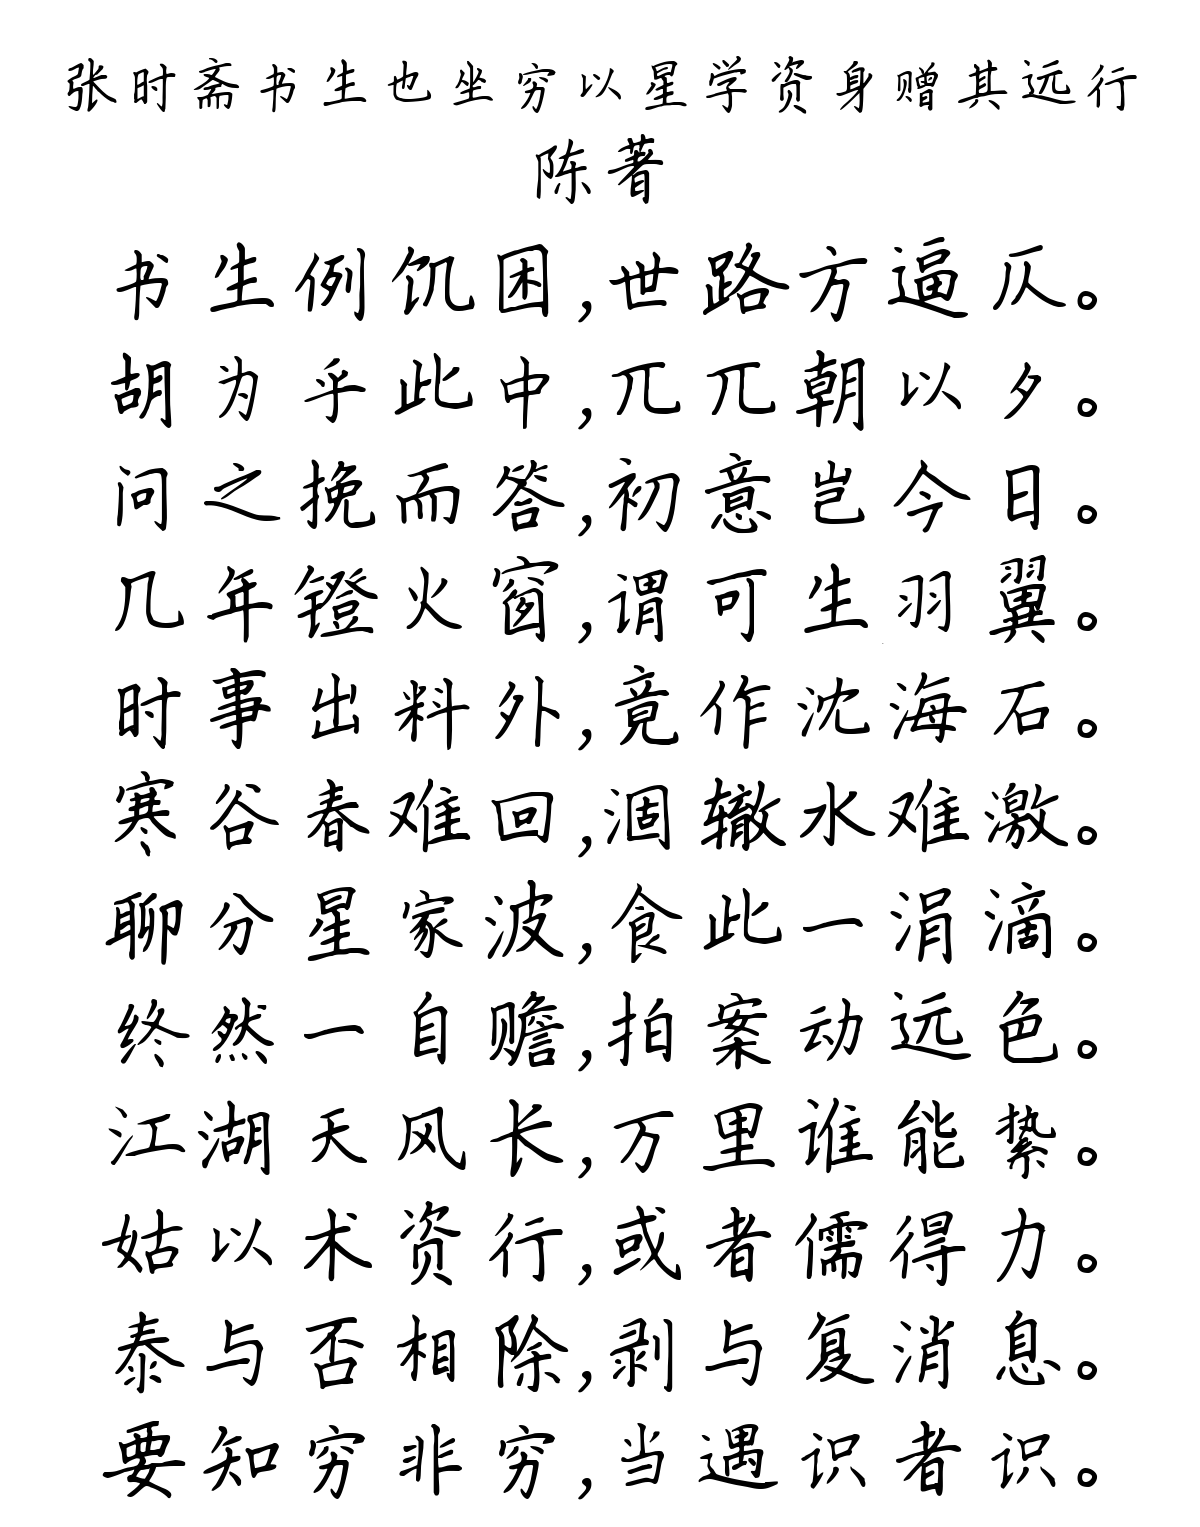 张时斋书生也坐穷以星学资身赠其远行
陈著
书生例饥困,世路方逼仄。
胡为乎此中,兀兀朝以夕。
问之挽而答,初意岂今日。
几年镫火窗,谓可生羽翼。
时事出料外,竟作沈海石。
寒谷春难回,涸辙水难激。
聊分星家波,食此一涓滴。
终然一自赡,拍案动远色。
江湖天风长,万里谁能絷。
姑以术资行,或者儒得力。
泰与否相除,剥与复消息。
要知穷非穷,当遇识者识。